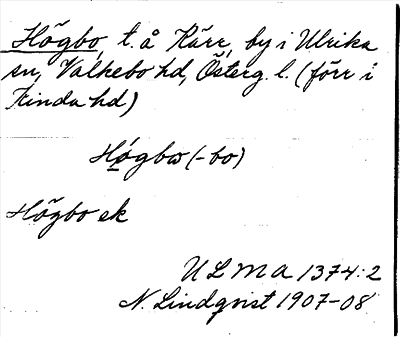 Högbo, t. å Kärr, by i Ulrika
sn, Valkebo hd, Österg. l. (förr i
Kinda hd)
Högbω (-bo)
Högbo ek
ULMA 1374:2
N. Lindqvist 1907-08